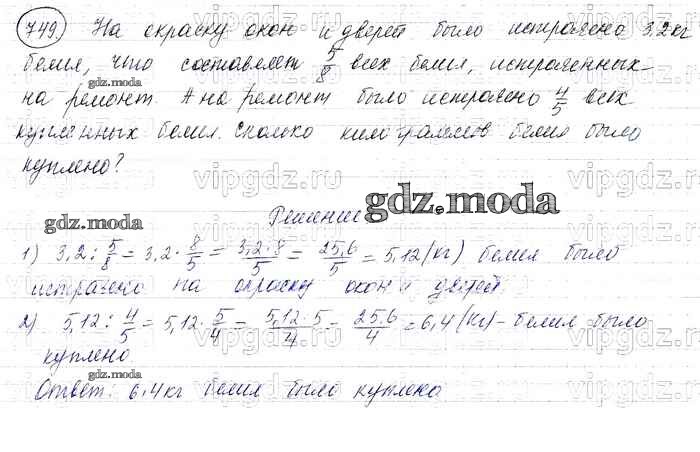 749. На окраску окон и дверей было истрачено 3,2 кг
белил, что составляет 5/8 всех белил, истраченных
на ремонт. А на ремонт было истрачено 4/5 всех
купленных белил. Сколько килограммов белил было
куплено?
gdz.moda
Решение
gdz.moda
1) 3,2 : 5/8 = 3,2 · 8/5 = 3,2·8/5 = 25,6/5 = 5,12 (кг) белил было
истрачено на окраску окон и дверей
2) 5,12 : 4/5 = 5,12 · 5/4 = 5,12·5/4 = 25,6/4 = 6,4 (кг) - белил было
куплено
gdz.moda
Ответ: 6,4 кг белил было куплено
vipgdz.ru